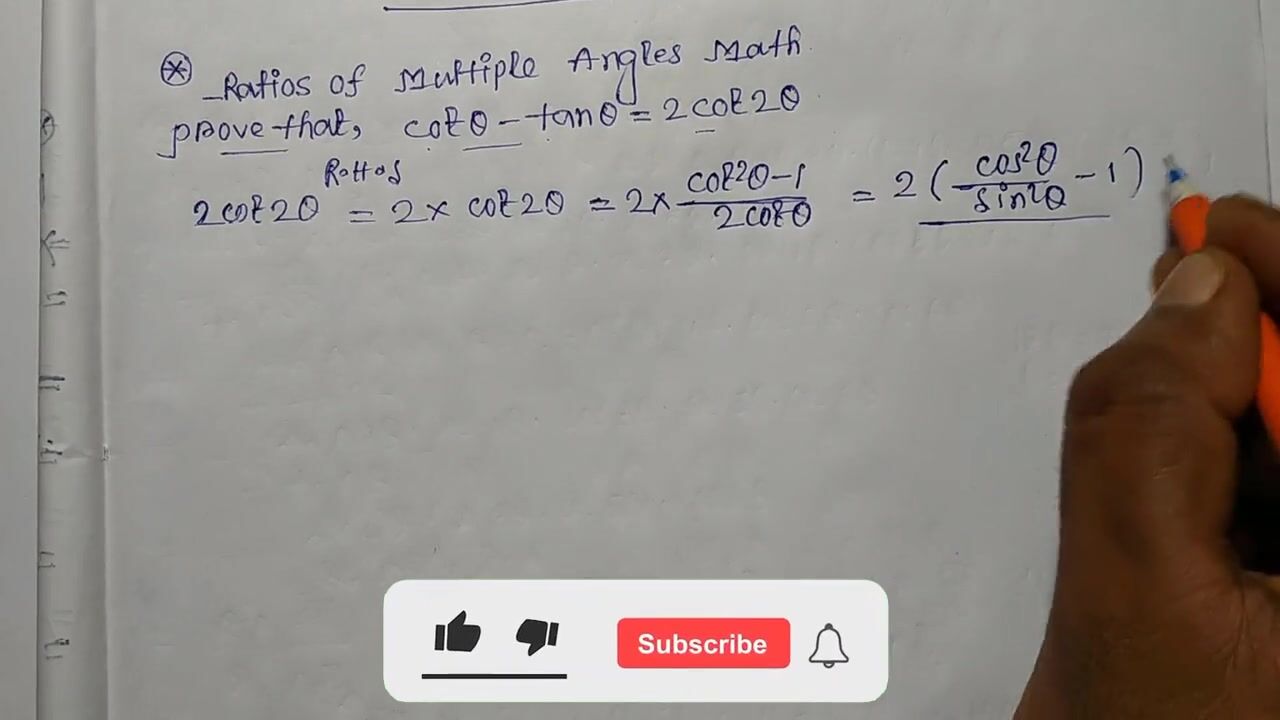 ⊛ Ratios of Multiple Angles Math
prove that, cotθ - tanθ = 2cot2θ
2cot2θ = 2 × cot2θ = 2 × (cot²θ-1)/(2cotθ) = 2(cos²θ/sin²θ - 1)
Subscribe